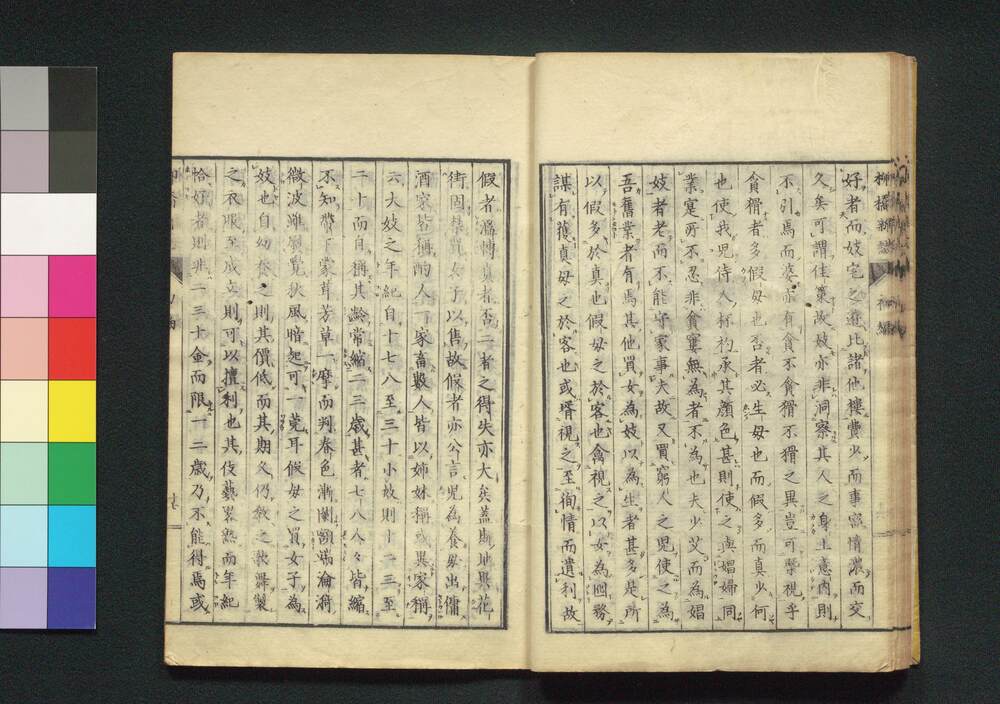 柳橋新誌 初編
好者而妓宅之遊比諸他樓費少而事密情濃而交
久矣可謂佳策故妓亦非洞察其人之身上意内則
不引焉而婆亦有貪不貪猾不猾之異豈可槩視乎
貪猾者多假母也否者必生母也而假多而真少何
也使我兒侍人杯杓承其顔色甚則使之與媢婦同
業寔所不忍非貪窶無為者不為也夫少艾而為娼
妓者老而不能守家事夫故又買窮人之兒使之為
吾舊業者有焉其他買女為妓以為生者甚多是所
以假多於真也假母之於客也禽視之以女為囮務
謀有獲真母之於客也或壻視之至徇情而遺利故
假者滔博真者否二者之得失亦大矣蓋斯地與花
街固禁鬻女子以售故假者亦公言兒為養母出傭
酒家皆稱酌人一家畜數人皆以姉妹稱或異家稱
六大妓之年紀自十七八至三十小妓則十二三至
二十而自稱其齡常縮二三歳甚者七八人々皆縮
不知帶下蒙茸芳草一摩而判春色漸闌顋端瀹漪
微波雖慰覺秋風暗起可一莞耳假母之買女子為
妓也自幼養之則其價低而其期久仍教之歌舞製
之衣服至成立則可以擅利也其伎藝畧熟而年紀
恰好者則非二三十金而限一二歳乃不能得焉或